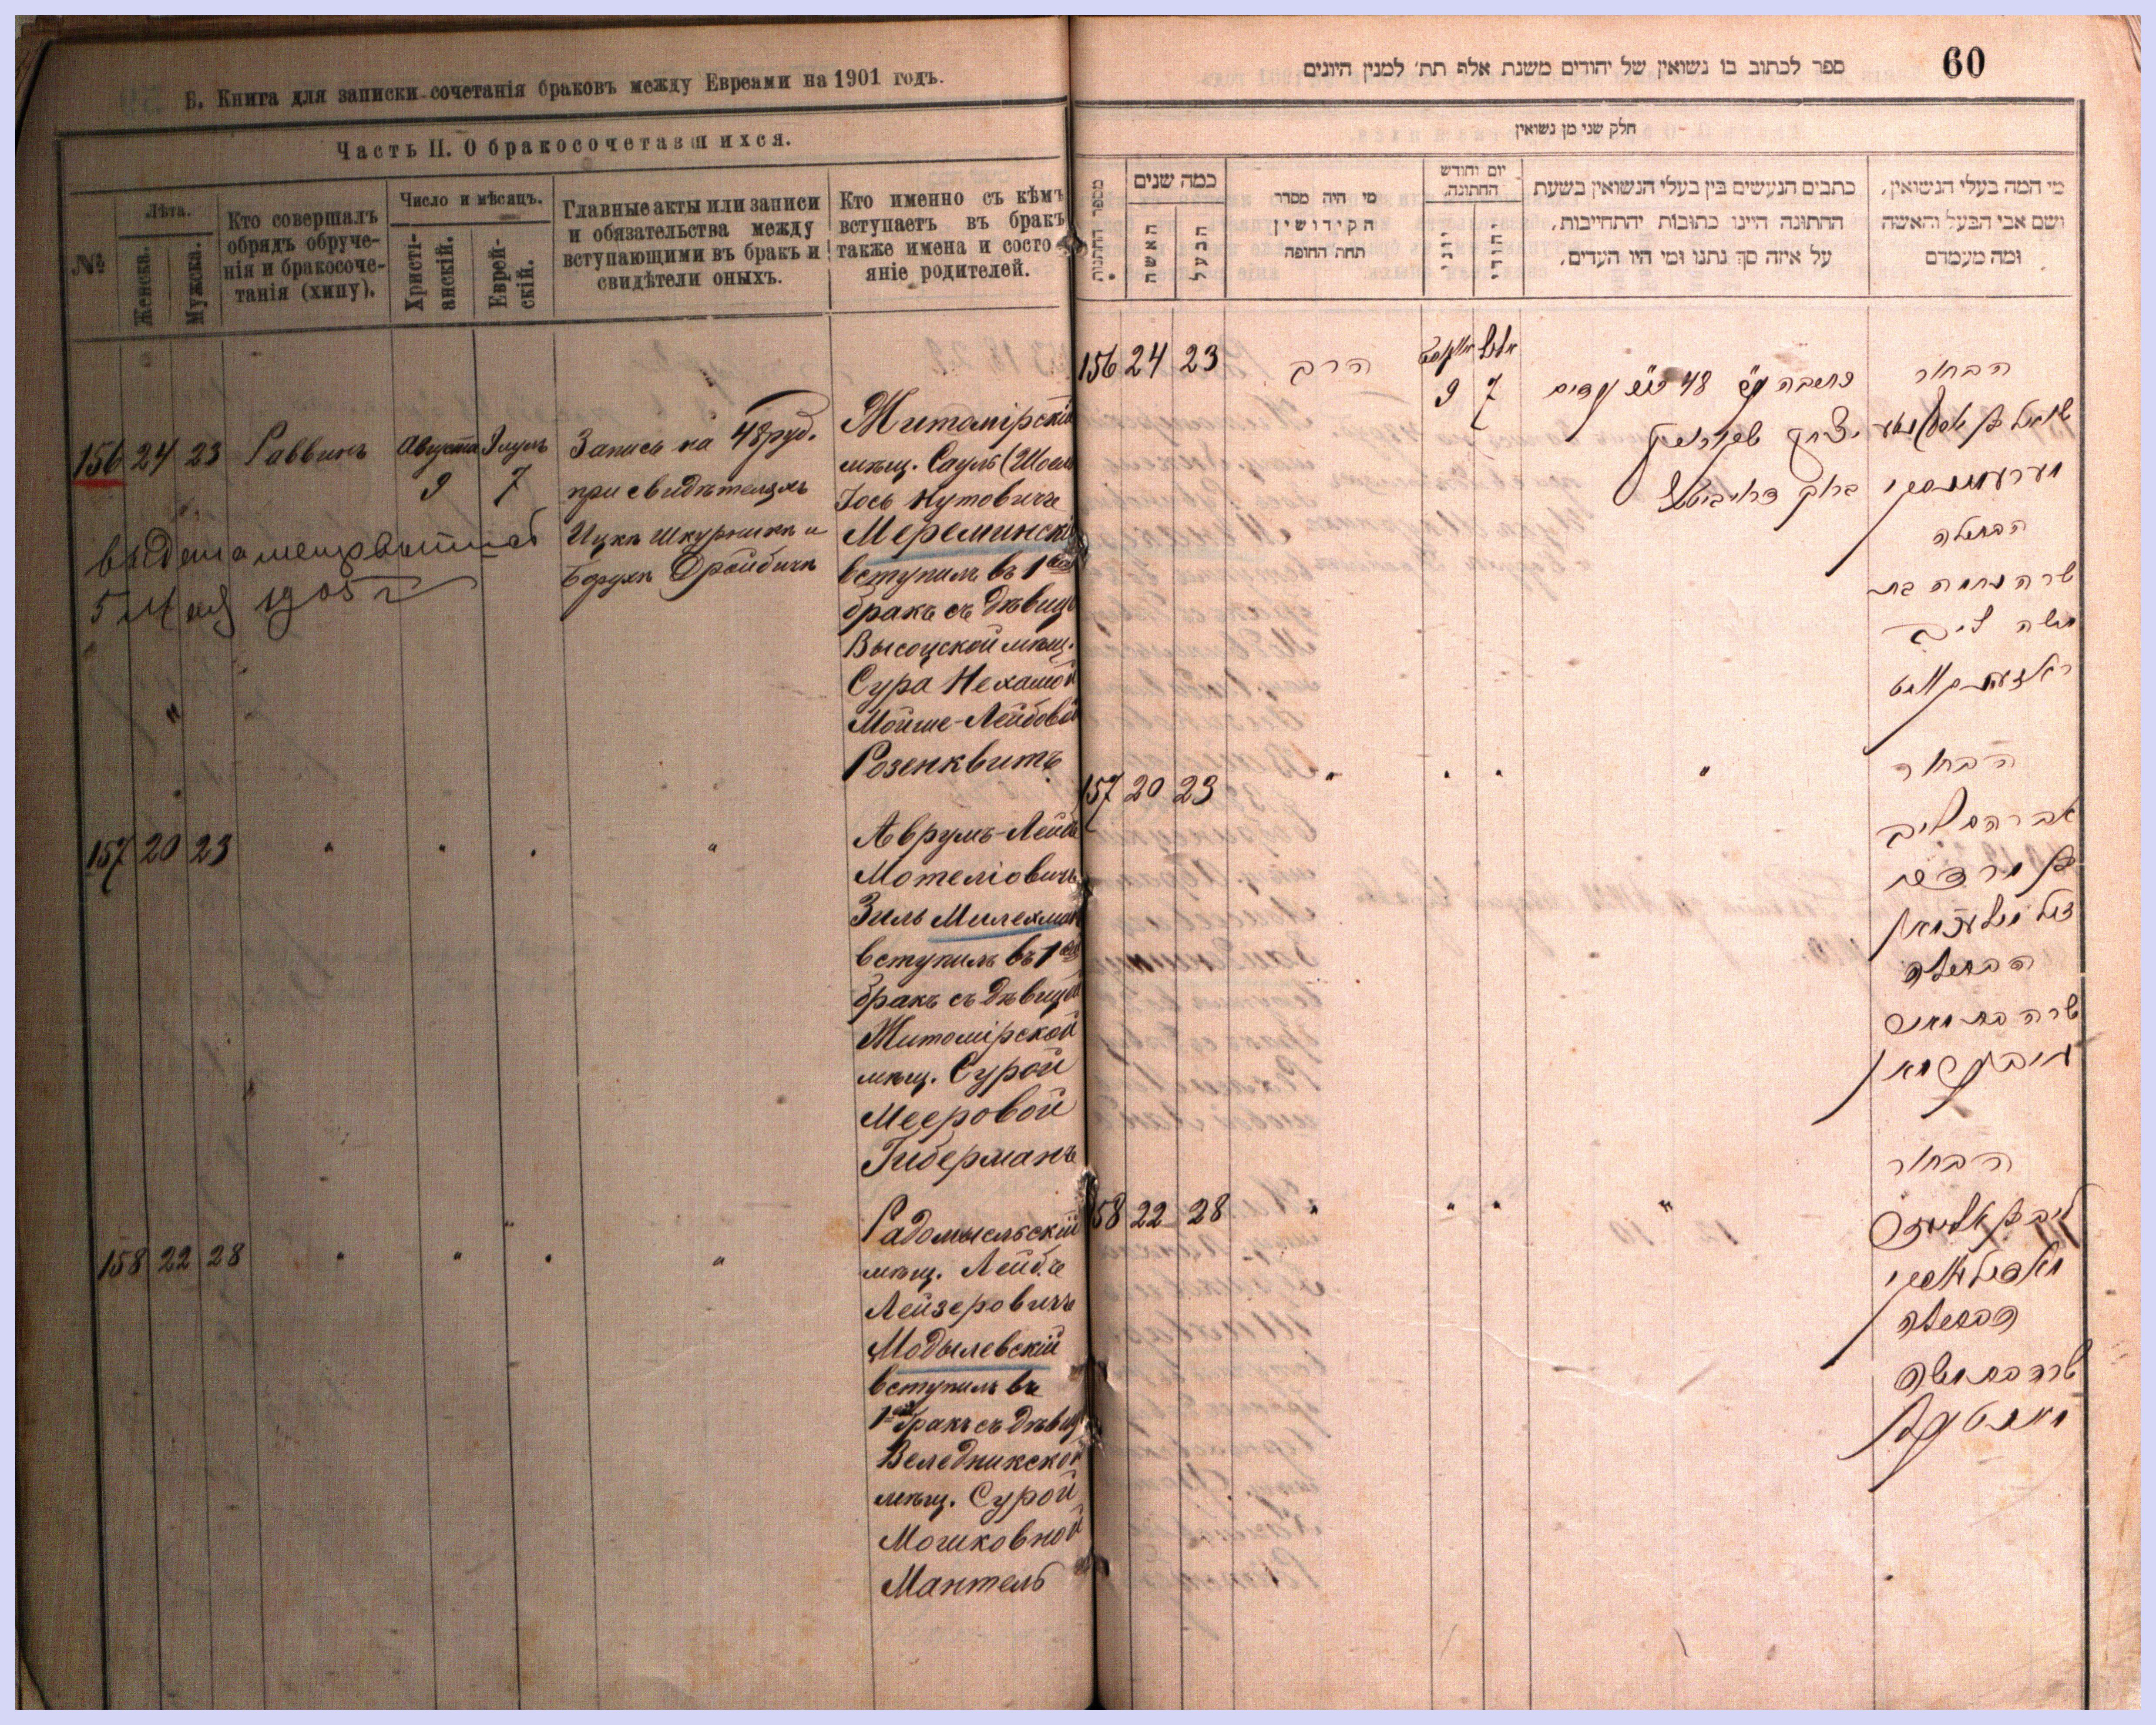 Б. Книга для записки сочетанія браковъ между Евреями на 1901 годъ.
Часть II. О бракосочетавшихся.
№
Лѣта.
Женска.
Мужска.
Кто совершалъ
обрядъ обруче-
нія и бракосоче-
танія (хипу).
Число и мѣсяцъ.
Христі-
анскій.
Еврей-
скій.
Главные акты или записи
и обязательства между
вступающими въ бракъ и
свидѣтели оныхъ.
Кто именно съ кѣмъ
вступаетъ въ бракъ
также имена и состо-
яніе родителей.
156 24 23 Раввинъ Августа 9 Элулъ 7
Запись на 48 руб.
при свидѣтеляхъ
Ицкъ Шкурникъ и
Борухъ Дройбичъ
5 Мая 1905 г
Житомірскій
мѣщ. Сауль (Шоел
Іось Нутовичъ
Мереминскій
вступилъ въ 1ый
бракъ съ дѣвицей
Высоцкой мѣщ.
Сура Нехамой
Мойше-Лейбовой
Розенквитъ
157 20 23 " " " "
Аврумъ-Лейбъ
Мотеліовичъ
Зиль Милехман
вступилъ въ 1ый
бракъ съ дѣвицей
Житомірской
мѣщ. Сурой
Мееровой
Гиберманъ
158 22 28 " " " "
Радомысльскій
мѣщ. Лейбъ
Лейзеровичъ
Модылевскій
вступилъ въ
1ый бракъ съ дѣвиц
Веледникской
мѣщ. Сурой
Мошковной
Мантель
60
ספר לכתוב בו נשואין של יהודים משנת אלף תת׳ למנין היונים
חלק שני מן נשואין
מספר החתונות
כמה שנים
האשה
הבעל
מי היה מסדר
הקידושין
תחת החופה
יום וחודש
החתונה.
יוני
יהודי
כתבים הנעשים בין בעלי הנשואין בשעת
החתונה היינו כתובות והתחייבות,
על איזה סך נתנו ומי היו העדים.
מי המה בעלי הנשואין,
ושם אבי הבעל והאשה
ומה מעמדם
156 24 23 הרב אויגוסט 9 אלול 7
48
הבחור
הבתולה
שרה נחמה בת
משה ליב
157 20 23 " " " "
הבחור
אברהם ליב
הבתולה
שרה בת מאיר
158 22 28 " " " "
הבחור
הבתולה
שרה בת משה